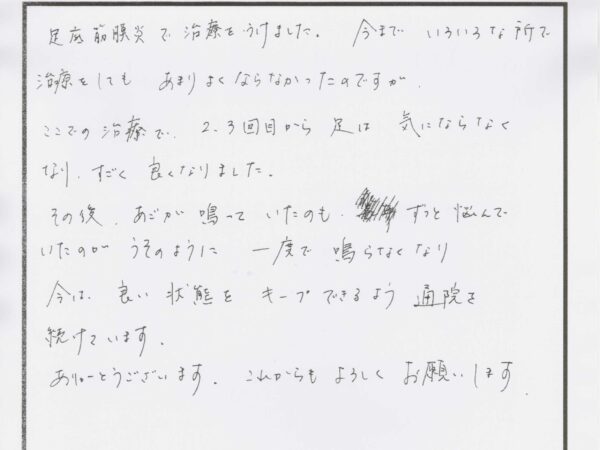 足底筋膜炎で治療をうけました。 今まで いろいろな所で
治療をしても あまりよくならなかったのですが、
ここでの治療で、2.3回目から 足は 気にならなく
なり、すごく 良くなりました。
その後、あごが 鳴って いたのも、 ずっと悩んで
いたのが うそのように 一度で 鳴らなくなり
今は、良い 状態を キープできるよう 通院を
続けています。
ありがとうございます。 これからも よろしく お願いします。